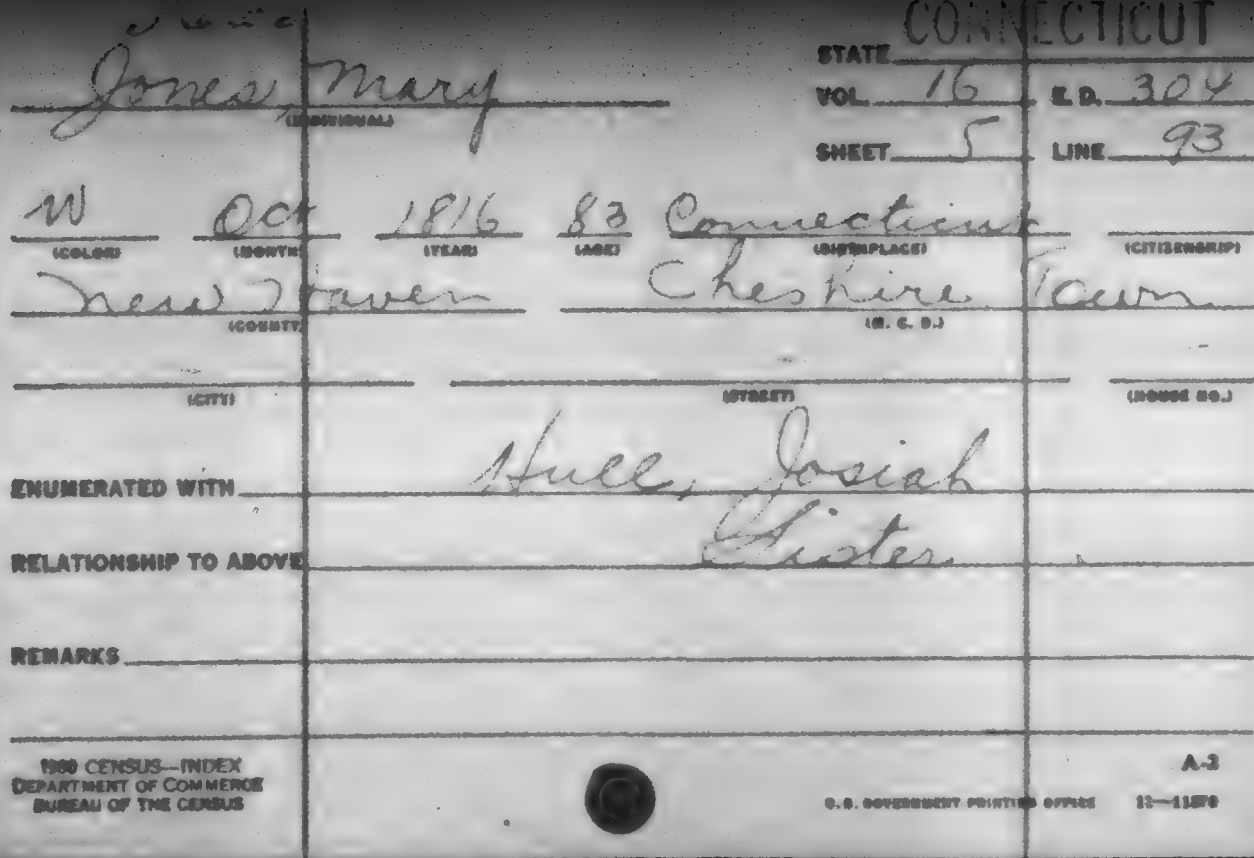 CONNECTICUT
STATE
Jones, Mary
VOL. 16 E. D. 304
(INDIVIDUAL)
SHEET 5 LINE 93
W Oct 1816 83 Connecticut
(COLOR) (MONTH) (YEAR) (AGE) (BIRTHPLACE) (CITIZENSHIP)
New Haven Cheshire Town
(COUNTY) (M. C. D.)
(CITY) (STREET) (HOUSE NO.)
ENUMERATED WITH Hull, Josiah
RELATIONSHIP TO ABOVE Sister
REMARKS
1900 CENSUS—INDEX
DEPARTMENT OF COMMERCE
BUREAU OF THE CENSUS
A-2
U.S. GOVERNMENT PRINTING OFFICE